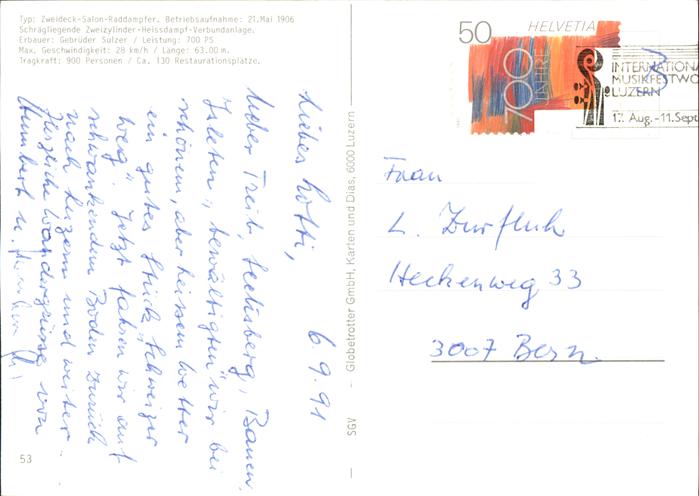 Typ: Zweideck-Salon-Raddampfer. Betriebsaufnahme: 21. Mai 1906
Schrägliegende Zweizylinder-Heissdampf-Verbundanlage.
Erbauer: Gebrüder Sulzer / Leistung: 700 PS
Max. Geschwindigkeit: 28 km/h / Länge: 63.00 m.
Tragkraft: 900 Personen / Ca. 130 Restaurationsplätze.
6. 9. 91
Liebes Lotti,
Ueber Treib, Seelisberg, Bauen,
Isleten, bewältigten wir bei
schönem, aber heissem Wetter
ein gutes Stück „Schweizer
weg". Jetzt fahren wir auf
schwankendem Boden zurück
nach Luzern und weiter.
Herzliche Wandergrüsse von
Humbert u.
53
SGV - Globetrotter GmbH, Karten und Dias, 6000 Luzern
50
HELVETIA
700 JAHRE
INTERNATIONA
MUSIKFESTWO
LUZERN
17. Aug.-11. Sept
Frau
L. Zurfluh
Heckenweg 33
3007 Bern